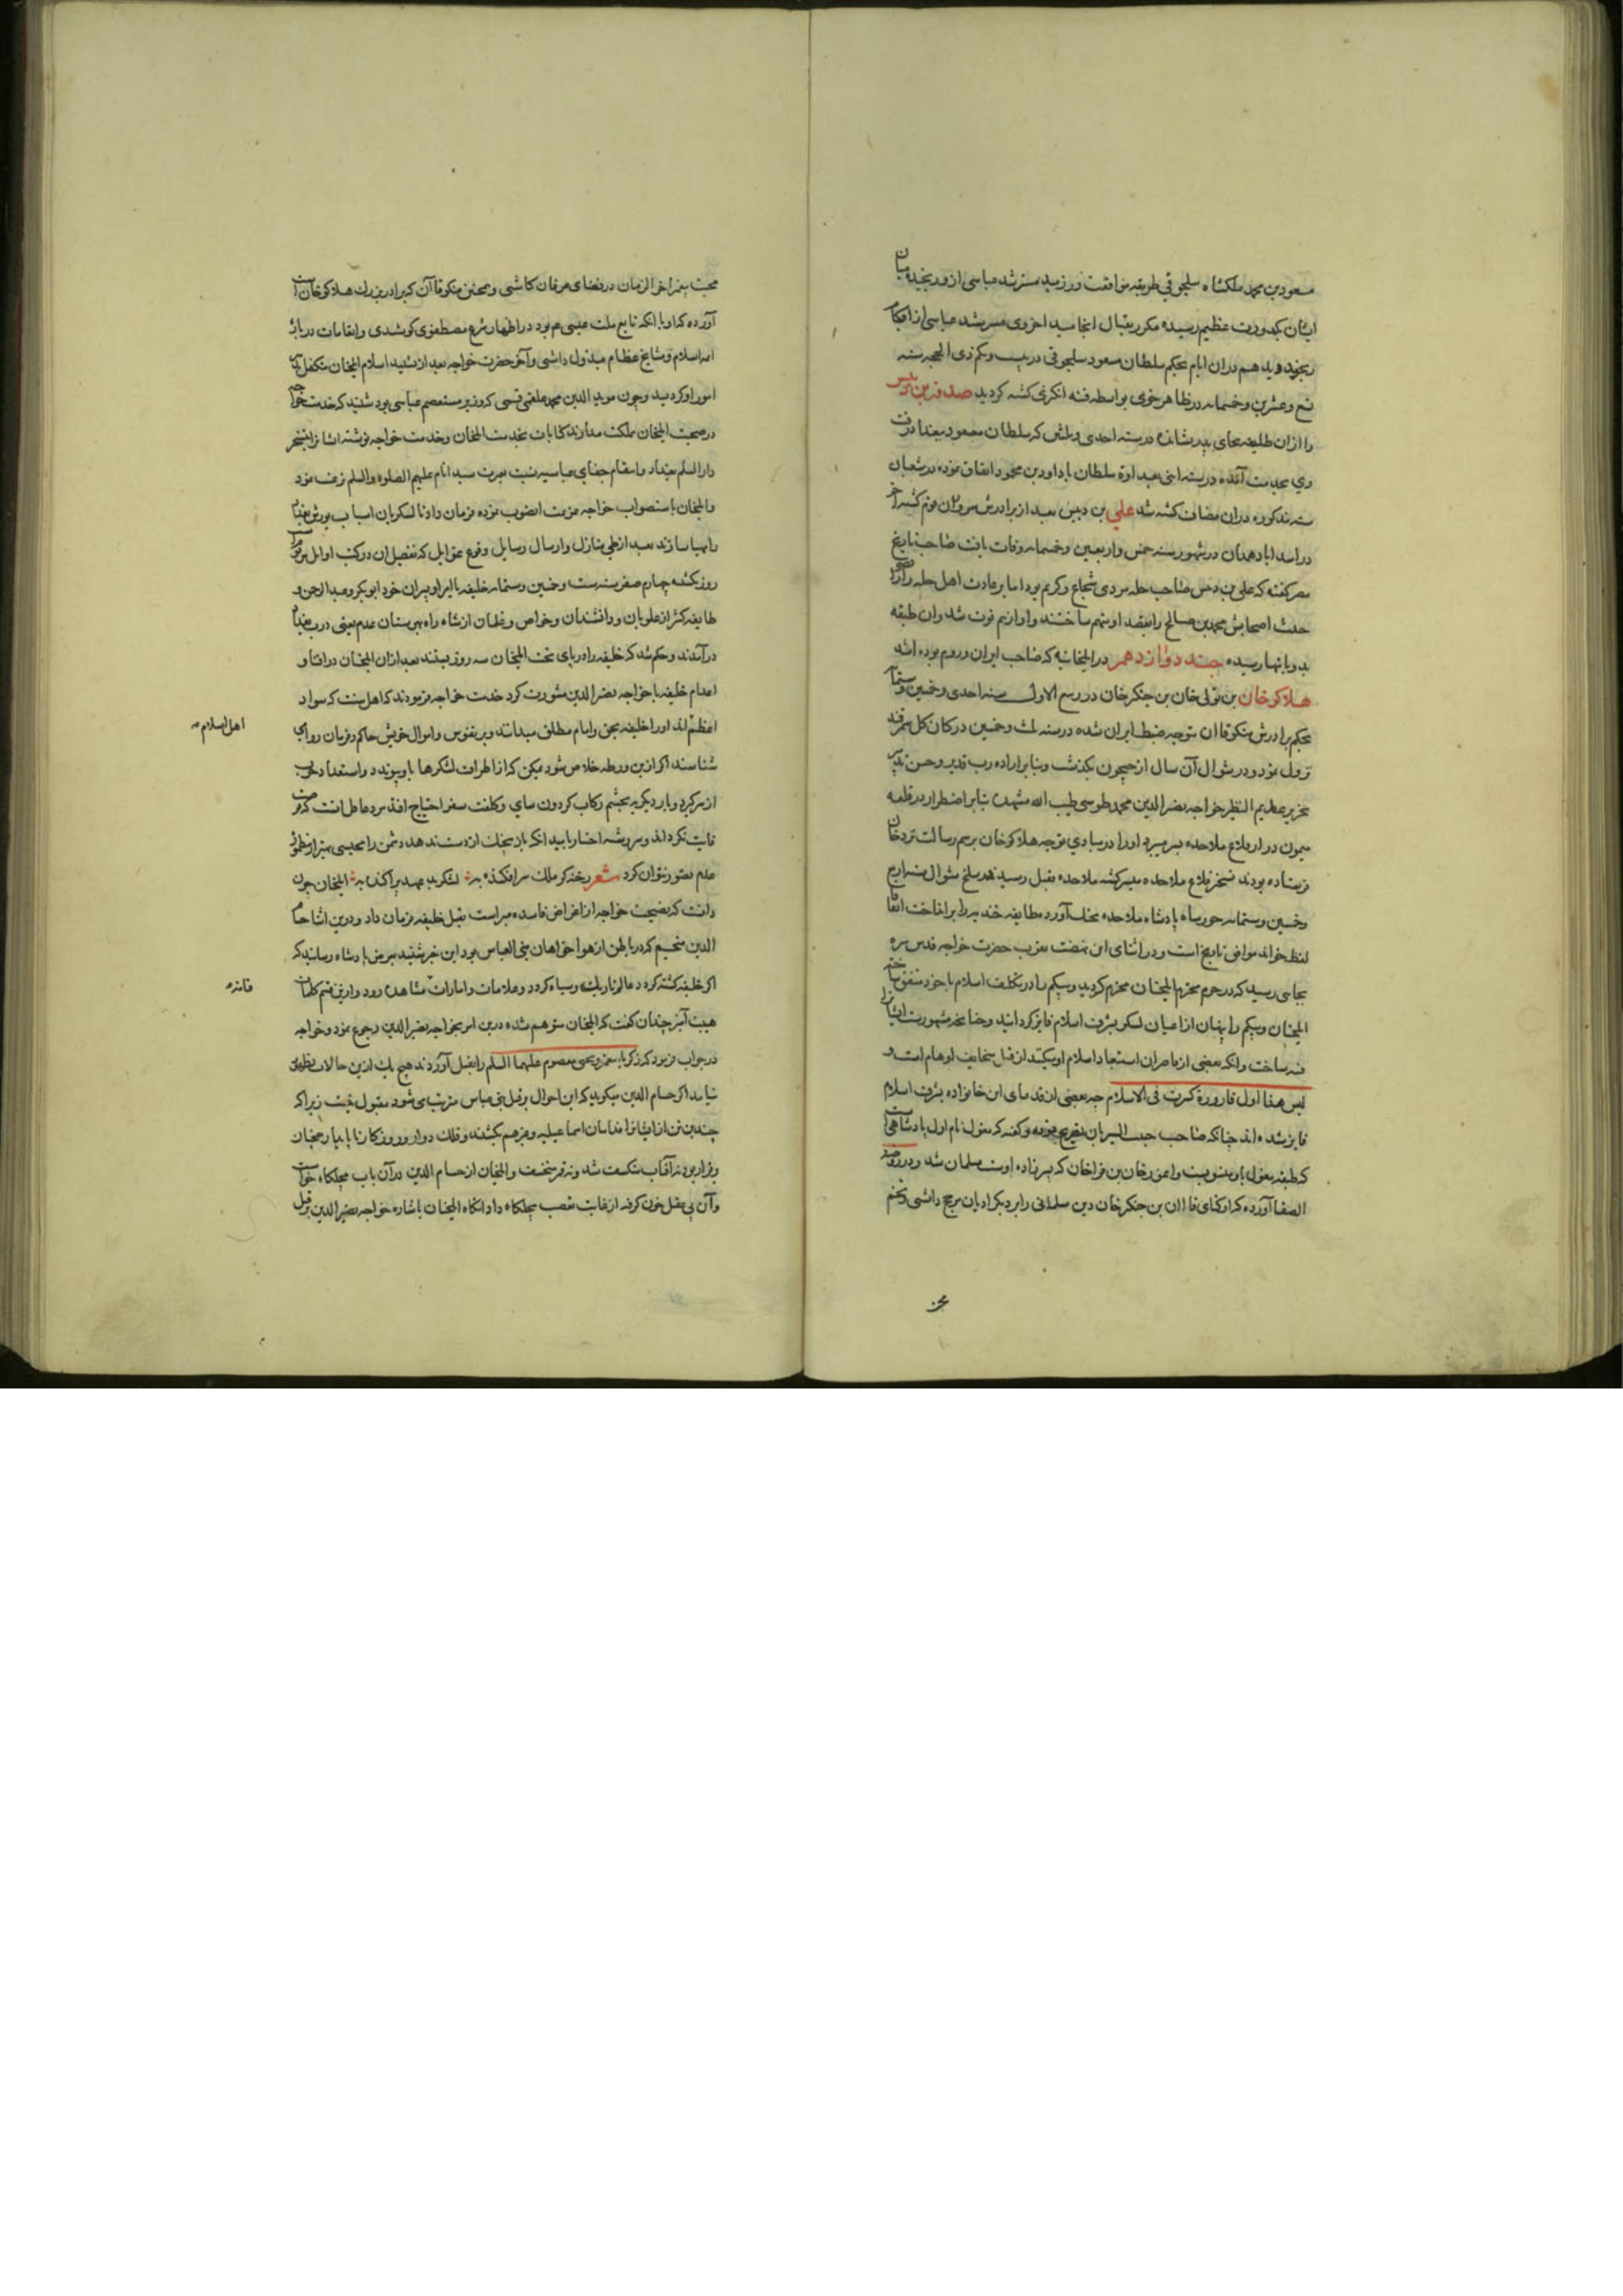 مسعود بن محمد ملکشاه سلجوقی طریقه موافقت ورزید مسترشد عباسی ازو رنجیده میان
ایشان بکدورت عظیم رسیده مکرر بقتال انجامید اخروی مسترشد عباسی از
هم دران ایام بحکم سلطان مسعود سلجوقی در بیست و یکم ذی الحجه سنه
تسع و عشرین و خمسمایه در ظاهر خوی بواسطه فتنه انکیزی کشته کردید صدقه بن دبیس
را ازان طلیعه بجای پدر نشانده در سنه احدی و ثلثین که سلطان مسعود ببغداد رفت
وی بخدمت آمده در سنه اثنی بعداوة سلطان با داود بن محمود اتفاق نموده در شعبان
سنه مذکوره دران مصاف کشته شد علی بن دبیس بعد از برادرش
در اسداباد همدان در شهور سنه خمس و اربعین و خمسمایه وفات یافت صاحب تاریخ
مصر کفته که علی بن دبیس صاحب حله مردی شجاع و کریم بود اما بر عادت اهل حله
اصحابش محمد بن صالح را بقصد او متهم ساختند و او از هم فوت شد و آن طبقه
بدو بانتها رسیده جند دوازدهم در ایلخانیه که صاحب ایران و روم بوده اند
هلاکو خان بن تولی خان بن جنکیز خان در ربیع الاول سنه احدی و خمسین و ستمایه
بحکم برادرش منکوقاآن متوجه ضبط ایران شده در سنه ثلث و خمسین در کان کل سمرقند
نزول نمود و در شوال آن سال از جیحون بکذشت و بنابر اراده رب قدیر و حسن تدبیر
نحریر عظیم النظر خواجه نصیر الدین محمد طوسی طیب الله مشهده بنابر اضطرار در قلعه
میمون دز از قلاع ملاحده بسر میبرد او را در مبادی توجه هلاکو خان برسم رسالت نزد خان
فرستاده بودند تسخیر قلاع ملاحده میسر کشته ملاحده بقتل رسیدند در سلخ شوال سنه اربع
و خمسین و ستمایه خورشاه پادشاه ملاحده بخدمت آورد
لفظ خواند موافق تاریخ است و در اثنای این نهضت تقرب حضرت خواجه قدس سره
بجایی رسید که در حرم محترم ایلخان محرم کردید و بیکم را در تکلیف اسلام با خود متفق ساخته
ایلخان و بیکم را پنهان از اعیان لشکر بشرف اسلام فایز کردانید
نه ساخت و انکه بعضی از قاصران استبعاد اسلام او میکنند از قبیل سخایف اوهام است و
لیس هذا اول قارورة کسرت فی الاسلام چه بعضی از قدمای این خانواده بشرف اسلام
فایز شده اند چنانکه صاحب حبیب السیر بان تصریح نموده و کفته که مغول نام اول پادشاهی
که طبقه مغول باو منسوبست و اغوز خان بن قراخان که نبیرزاده اوست مسلمان شد و در روضة
الصفا آورده که اوکتای قاآن بن جنکیز خان دین مسلمانی را بر دیکر ادیان مرجح داشتی و تخم
محبت پیغمبر آخر الزمان در فضای عرفان کاشتی و همچنین منکوقاآن که برادر بزرک هلاکو خان است
آورده که او با انکه تابع ملت عیسی م بود در اظهار شرع مصطفوی کوشیدی و انعامات درباره
ائمه اسلام و مشایخ عظام مبذول داشتی و آخر حضرت خواجه بعد از تشیید اسلام ایلخان متکفل
امور او کردید و چون موید الدین محمد علقمی قمی که وزیر مستعصم عباسی بود شنید که خدمت خواجه
در صحبت ایلخان ملکت مدارند کتابات بخدمت ایلخان و خدمت خواجه نوشته ایشانرا بتسخیر
دار السلم بغداد و انتقام جفای عباسیه نسبت بعترت سید انام علیهم الصلوه والسلم ترغیب نمود
و ایلخان باستصواب خواجه عزیمت انصوب نموده فرمان داد تا لشکریان اسباب یورش بغداد
را مهیا سازند بعد از طی منازل و ارسال رسایل و وقوع غوایل که تفصیل ان در کتب
روز یکشنبه چهارم صفر سنه ست و خمسین و ستمایه خلیفه با امرا و پسران خود ابوبکر و عبدالرحمن و
طایفه کثیر از علویان و دانشمندان و خواص و غلمان از شاه راه بیرستان عدم یعنی درب بغداد
درآمدند و حکم شد که خلیفه را در پای تخت ایلخان سه روز ببندند بعد ازان ایلخان در افنا و
اعدام خلیفه با خواجه نصیر الدین مشورت کرد خدمت خواجه فرمودند که اهل سنت که سواد
اعظم اند او را خلیفه بحق و امام مطلق میدانند و بر نفوس و اموال خویش حاکم و فرمان روای
شناسند اکر ازین ورطه خلاص شود ممکن که از اطراف لشکرها باو پیوندد و استعداد حرب
از سر کیرد و بار دیکر به تجشم رکاب کردون سای و کلفت سفر احتیاج افتد مرد عاقل انست که
فایت نکرداند و سررشته اختیار
عدم تصور نتوان کرد شعر
دانست که نصیحت خواجه از اغراض فاسده مبراست بقتل خلیفه فرمان داد و درین اثنا حسام
الدین منجم که در باطن از هواخواهان بنی العباس بود این خبر شنیده بعرض پادشاه رسانید که
اکر خلیفه کشته کردد عالم تاریک و سیاه کردد و علامات و امارات مشاهده رود و ازین قسم کلمات
هیبت آمیز چندان کفت که ایلخان متوهم شده درین امر بخواجه نصیر الدین رجوع نمود و خواجه
در جواب فرمود که زکریا پیغمبر و یحیی معصوم علیهما السلم را بقتل آوردند هیچ یک ازین حالات بظهور
نیامد اکر حسام الدین میکوید که این احوال بر قتل بنی عباس مترتب می شود مقبول نیست زیرا که
چندین تن از ایشانرا فداییان اسماعیلیه و غیرهم بکشتند و فلک دوار و روزکار ناپایدار همچنان
برقرار بود نه آفتاب منکسف شد و نه قمر منخسف و ایلخان از حسام الدین در آن باب مچلکاه خواست
و آن بی عقل خون کرفته از غایت تعصب مچلکاء داد انکاه ایلخان باشاره خواجه نصیر الدین
اهل اسلام